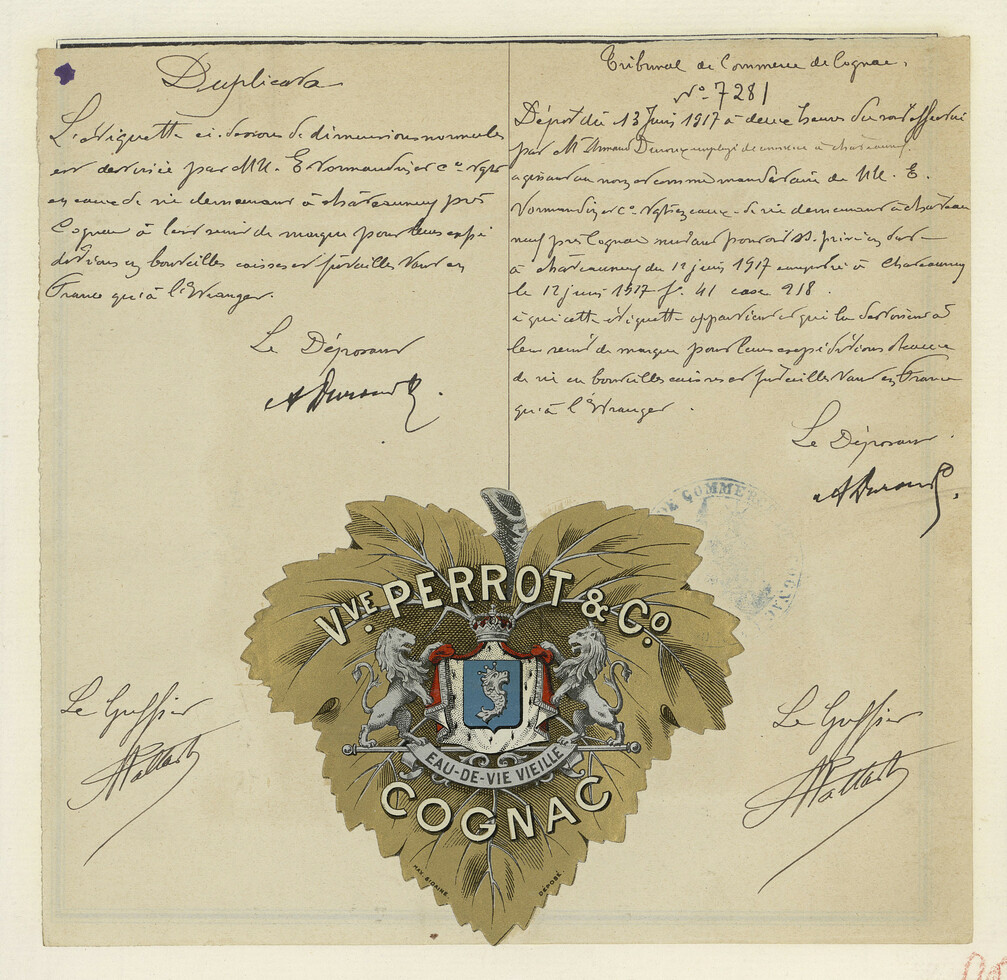 Duplicata
L'étiquette ci-dessous de dimensions normales
est destinée par MM. E. Normandin et Cº Négts
en eaux de vie demeurant à Châteauneuf près
Cognac à leur servir de marque pour leurs expé
ditions en bouteilles caisses et futailles tant en
France qu'à l'Etranger.
Le Déposant
A Durand
Tribunal de Commerce de Cognac.
Nº 7281
Dépôt du 13 Juin 1917 à deux heures du soir effectué
par Mr Armand employé de commerce à Châteauneuf
agissant au nom et comme mandataire de MM. E.
Normandin et Cº Négts en eaux-de-vie demeurant à Château
neuf près Cognac suivant pouvoir SS. privées daté
à Châteauneuf du 12 juin 1917 enregistré à Châteauneuf
le 12 juin 1917 fº 41 case 218.
à qui cette étiquette appartient et qui la destinent à
leur servir de marque pour leurs expéditions d'eaux
de vie en bouteilles caisses et futailles tant en France
qu'à l'Etranger.
Le Déposant
A Durand
DE COMMERCE
COGNAC
VVE. PERROT & Cº
EAU-DE-VIE VIEILLE
COGNAC
DÉPOSÉ.
Le Greffier
Le Greffier